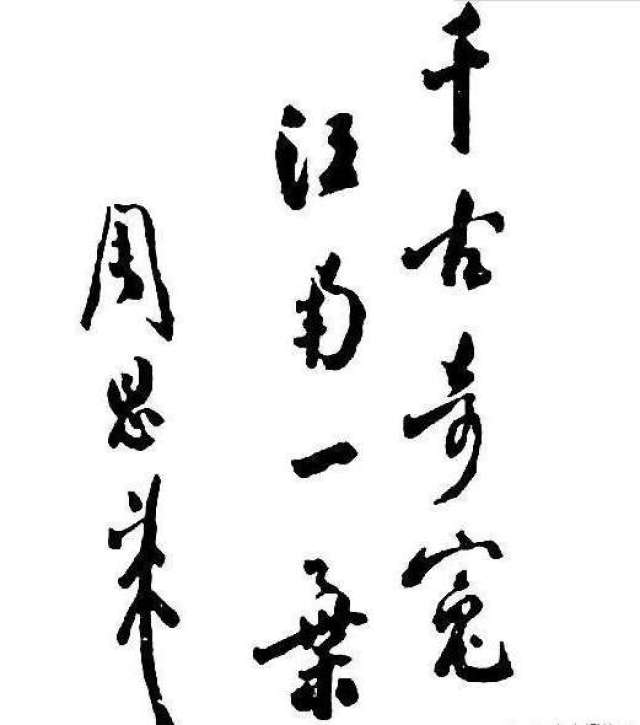 千古奇冤
江南一葉
周恩来